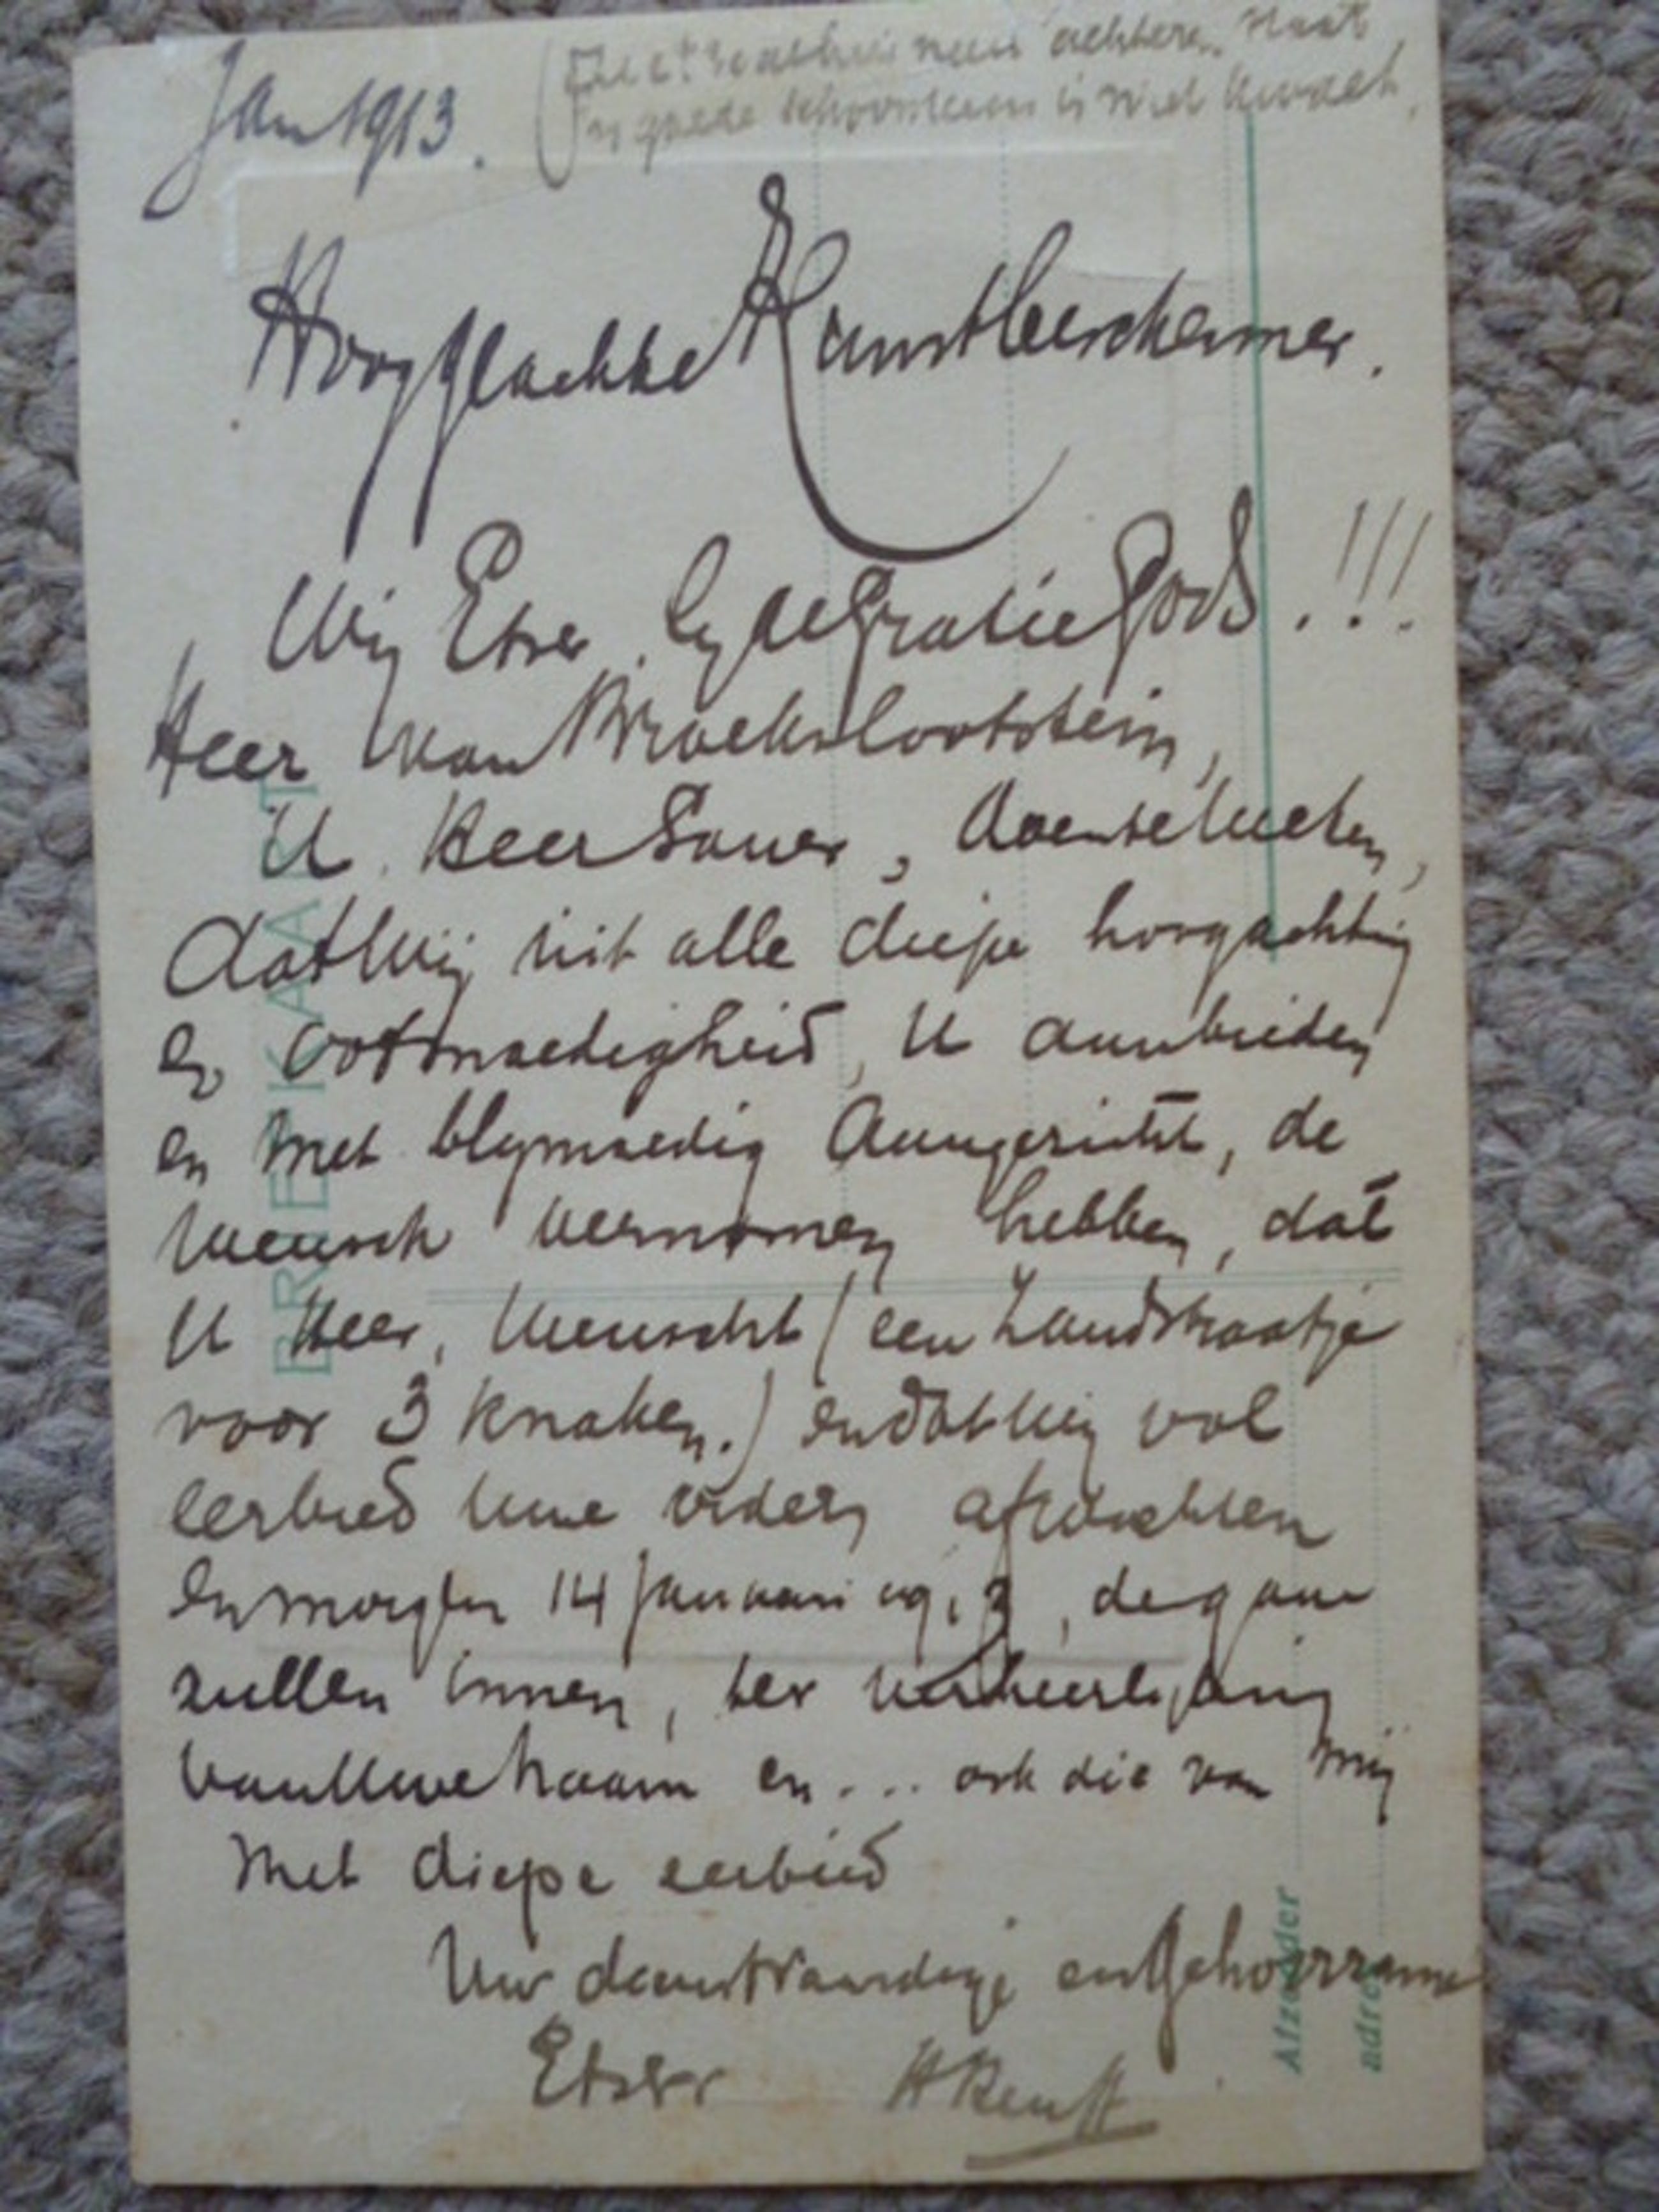 Jan 1913.
achtere. staat
goede schoonheid is niet kwaad.
Hooggeachte Kunstbeschermer.
Wij Etser by de Gratie Gods.!!!
Heer van Broekslootstein,
U Heer Sauer, doen te weten,
dat wij uit alle diepe hoogachting
en ootmoedigheid, U aanbieden
en met blymoedig aangezicht, de
wensch vernomen hebben, dat
U Heer, wenscht (een Zandstraatje
voor 3 knaken.) en dat wij vol
eerbied uwe orders afwachten
en morgen 14 Januari 1913, de gaan
zullen innen, ter verheerlijking
van Uwe naam en ... ook die van mij
Met diepe eerbied
Uw dienstvaardige en gehoorzame
Etser HRenft
BRIEFKAART
Afzender
adres